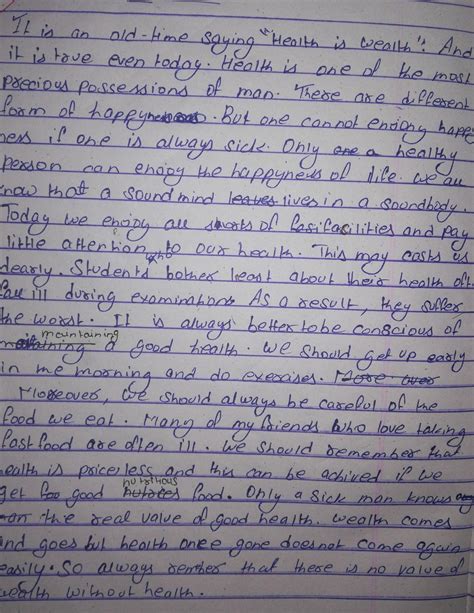 It is an old-time saying "Health is wealth". And
it is true even today. Health is one of the most
precious possessions of man. There are different
form of happyness. But one cannot enjony happe
ness if one is always sick. Only one a healthy
person can enjoy the happyness of life. we all
now that a soundmind leaves lives in a soundbody.
Today we enjoy all sports of fasifacilities and pay
little attention to our health. This may casts us
dearly. Students who bother least about their health oft
fall ill during examinations As a result, they suffer
the worst. It is always better to be conscious of
mountaining
a good health. we should get up early
in the morning and do exercises. More over
Moreover, we should always be careful of the
food we eat. Many of my friends who love taking
fastfood are often ill. we should remember that
ealth is priceless and this can be achived if we
nutritious
get foo good food. Only a sick man knows
the real value of good health. wealth comes
and goes but health once gone doesnot come again
easily. So always rember that there is no value of
wealth without health.